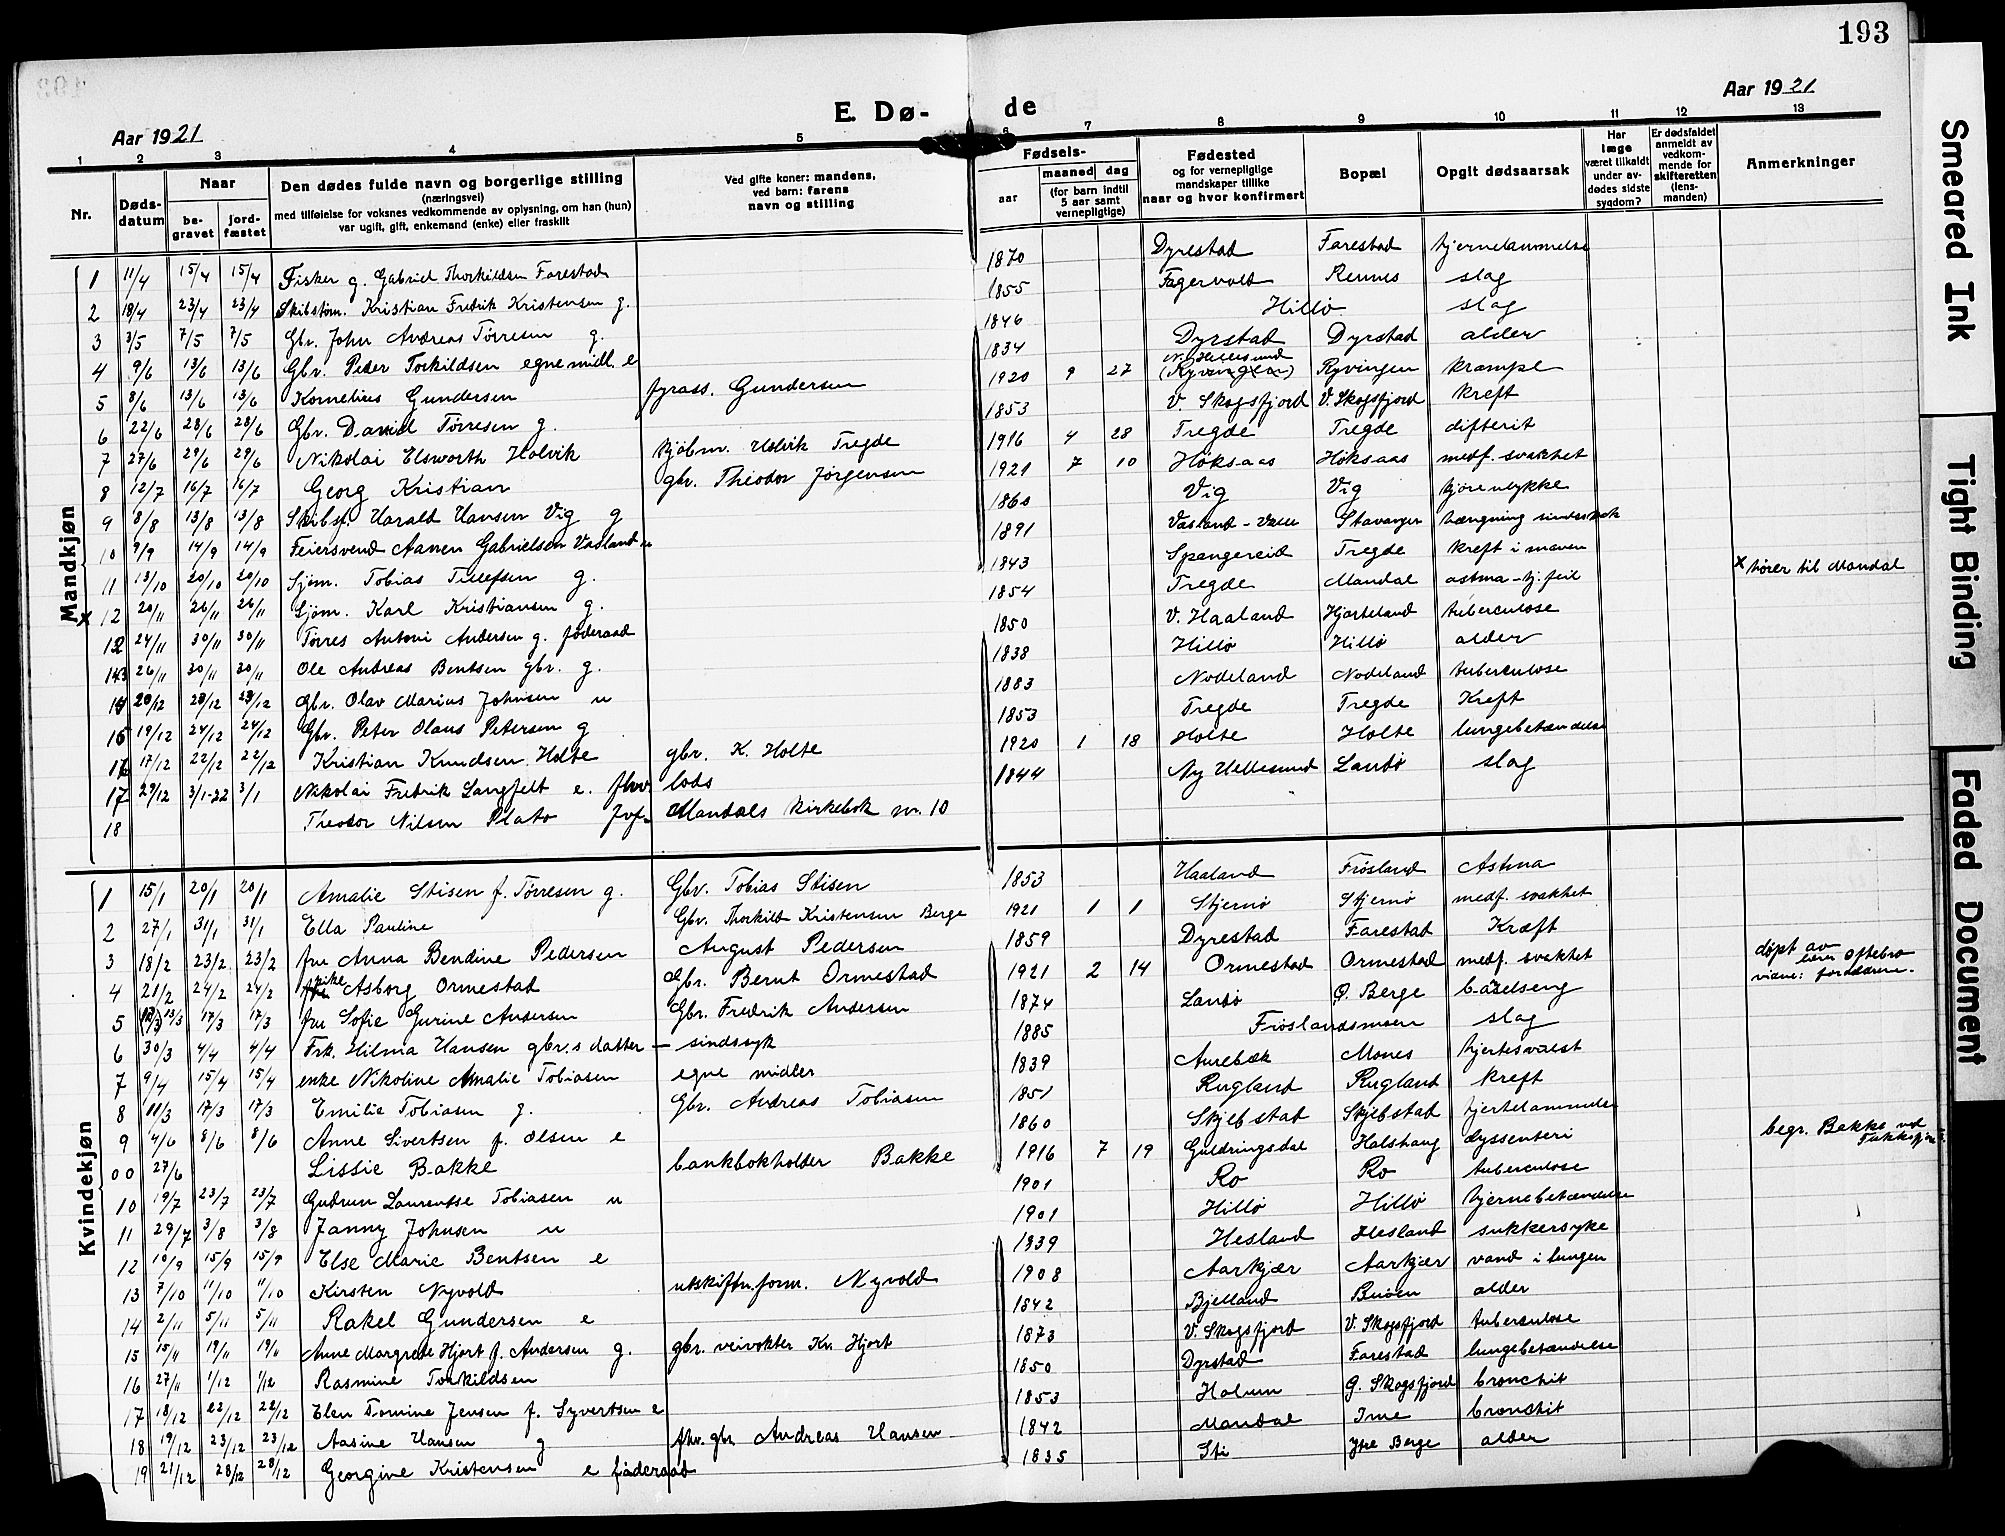 193
Aar 1921
Aar 1921
E. Dø-
de
1 2 3 4 5 6 7 8 9 10 11 12 13
Nr.
Døds-
datum
Naar
be-
gravet
jord-
fæstet
Den dødes fulde navn og borgerlige stilling
(næringsvei)
med tilføielse for voksnes vedkommende av oplysning, om han (hun)
var ugift, gift, enkemand (enke) eller fraskilt
Ved gifte koner: mandens,
ved barn: farens
navn og stilling
Fødsels-
aar
maaned dag
(for barn indtil
5 aar samt
vernepligtige)
Fødested
og for vernepligtige
mandskaper tillike
naar og hvor konfirmert
Bopæl
Opgit dødsaarsak
Har
læge
været tilkaldt
under av-
dødes sidste
sygdom?
Er dødsfaldet
anmeldt av
vedkom-
mende for
skifteretten
(lens-
manden)
Anmerkninger
Mandkjøn
1 11/4 15/4 15/4 Fisker g. Gabriel Thorkildsen Farestad 1870 Dyrestad Farestad hjernelammelse
2 18/4 23/4 23/4 Skibstøm. Kristian Fredrik Kristensen g. 1855 Fagervold Rennes slag
3 3/5 7/5 7/5 Gbr. John Andreas Tørresen g. 1846 Hillø slag
4 9/6 13/6 13/6 Gbr. Peder Torkildsen egne midl. e 1834 Dyrstad Dyrstad alder
5 8/6 13/6 13/6 Kornelius Gundersen fyrass. Gundersen 1920 9 27 N. Hellesund (Ryvingen) Ryvingen krampe
6 22/6 28/6 28/6 Gbr. David Tørresen g. 1853 V. Skogsfjord V. Skogsfjord kreft
7 27/6 29/6 29/6 Nikolai Elsworth Holvik kjøbm. Holvik Tregde 1916 4 28 Tregde Tregde difterit
8 12/7 16/7 16/7 Georg Kristian gbr. Theodor Jørgensen 1921 7 10 Høksaas Høksaas medf. svakhet
9 8/8 13/8 13/8 Skibsf. Harald Hansen Vig g 1860 Vig Vig kjøreulykke
10 9/9 14/9 14/9 Feiersvend Aanen Gabrielsen Vasland u 1891 Vasland - Valle Stavanger hængning sindssyk
11 13/10 20/10 20/10 Sjøm. Tobias Tellefsen g. 1843 Spangereid Tregde kreft i maven
x 12 20/11 26/11 26/11 Sjøm. Karl Kristiansen g. 1854 Tregde Mandal astma - hj. feil x hører til Mandal
12 24/11 30/11 30/11 Tørres Antoni Andersen g. føderaad 1850 V. Haaland Hjorteland tuberculose
13 26/11 30/11 30/11 Ole Andreas Bentsen gbr. g. 1838 Hillø Hillø alder
14 20/12 28/12 28/12 Gbr. Olav Marius Johnsen u 1883 Nodeland Nodeland tuberculose
15 19/12 24/12 24/12 Gbr. Peter Olaus Petersen g 1853 Tregde Tregde Kreft
16 17/12 22/12 22/12 Kristian Knudsen Holte gbr. K. Holte 1920 1 18 Holte Holte lungebetændelse
17 29/12 3/1-22 3/1 Nikolai Fredrik Langfelt e. fhv. lods 1844 Ny Hellesund Landø slag
18 Theodor Nilsen Plato Mandals kirkebok nr. 10
Kvindekjøn
1 15/1 20/1 20/1 Amalie Stisen f. Tørresen g. Gbr. Tobias Stisen 1853 Haaland Frøsland Astma
2 27/1 31/1 31/1 Ella Pauline Gbr. Thorkild Kristensen Berge 1921 1 1 Stjernø Stjernø medf. svakhet
3 18/2 23/2 23/2 fru Anna Bendine Pedersen August Pedersen 1859 Dyrestad Farestad Kræft
4 21/2 24/2 24/2 pike Asborg Ormestad Gbr. Bernt Ormestad 1921 2 14 Ormestad Ormestad medf. svakhet døpt av
5 13/3 17/3 17/3 fru Sofie Gurine Andersen Gbr. Fredrik Andersen 1874 Landø Ø. Berge barselseng
6 30/3 4/4 4/4 Frk. Hilma Hansen gbr.s datter - sindssyk 1885 Frøslandsmoen slag
7 9/4 15/4 15/4 enke Nikoline Amalie Tobiasen egne midler 1839 Aurebæk Mones hjertesvulst
8 11/3 17/3 17/3 Emilie Tobiasen g. Gbr. Andreas Tobiasen 1851 Rugland Rugland kreft
9 4/6 8/6 8/6 Anne Sivertsen f. Olsen e 1860 Skjebstad Skjebstad hjertelammelse
00 27/6 Lissie Bakke bankbokholder Bakke 1916 7 19 Guldringsdal Halshaug dyssenteri begr. Bakke
10 19/7 23/7 23/7 Gudrun Lauentse Tobiasen u 1901 Ro Ro tuberculose
11 29/7 3/8 3/8 Janny Johnsen u 1901 Hillø Hillø hjernebetændelse
12 10/9 15/9 15/9 Else Marie Bentsen e 1839 Hesland Hesland sukkersyke
13 7/10 11/10 11/10 Kirsten Nyvold utskiftn.form. Nyvold 1908 Aarkjær Aarkjær vand i lungen
14 2/11 5/11 5/11 Rakel Gundersen e 1842 Bjelland Buøen alder
15 15/11 19/11 19/11 Anne Margrete Hjort f. Andersen g. gbr. veivokter Kr. Hjort 1873 V. Skogsfjord V. Skogsfjord tuberkulose
16 27/11 1/12 1/12 Rasmine Torkildsen 1850 Dyrstad Farestad lungebetændelse
17 18/12 22/12 22/12 Elen Tomine Jensen f. Syvertsen e 1853 Holum G. Skogsfjord bronchit
18 19/12 23/12 23/12 Aasine Hansen g fhv. gbr. Andreas Hansen 1842 Mandal Ime bronchit
19 21/12 28/12 28/12 Georgine Kristensen e føderaad 1835 Sti Ytre Berge alder
Smeared Ink
Tight Binding
Faded Document